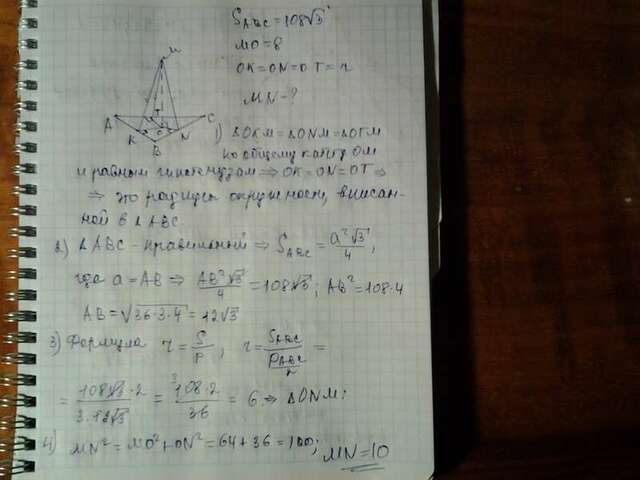 S_ABC = 108√3
MO = 8
OK = ON = OT = r
MN - ?
M
A
K
O
N
C
B
T
1) ΔOKM = ΔONM = ΔOTM
по общему катету OM
и равным гипотенузам ⇒ OK = ON = OT ⇒
⇒ это радиусы окружности, вписан-
ной в ΔABC.
2) ΔABC - правильный ⇒ S_ABC = a²√3/4 ,
где a = AB ⇒ AB²√3/4 = 108√3 ; AB² = 108·4
AB = √36·3·4 = 12√3
3) Формула r = S/p , r = S_ABC / (P_ABC/2) =
= 108√3·2 / 3·12√3 = 108·2 / 36 = 6 ⇒ ΔONM:
4) MN² = MO² + ON² = 64 + 36 = 100; MN = 10